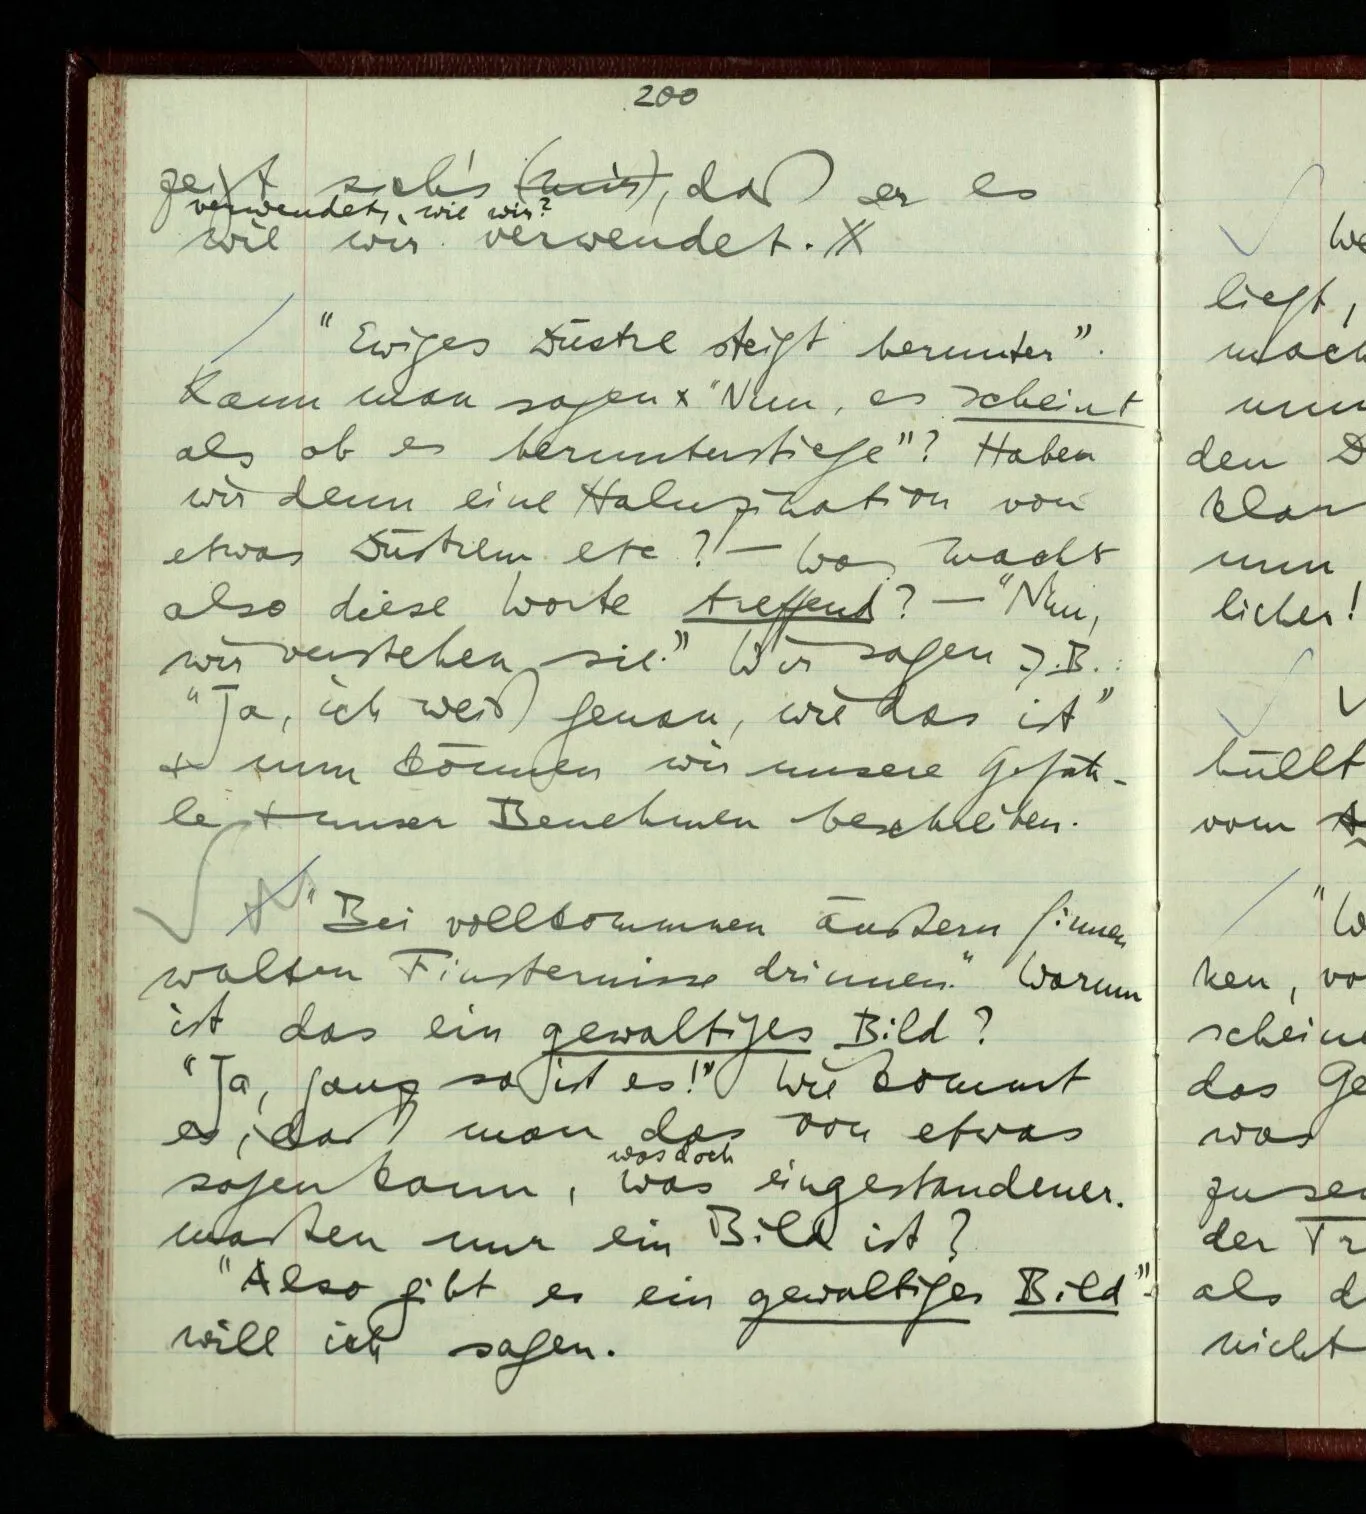 200
zeigt sich's (uns), daß er es
verwendet, wie wir?
wie wir verwendet. X
"Ewiges Düstre steigt herunter".
Kann man sagen "Nun, es scheint
als ob es herunterstiege"? Haben
wir denn eine Haluzination von
etwas Düstrem etc? — Was macht
also diese Worte treffend? — "Nun,
wir verstehen sie." Wir sagen z.B.:
"Ja, ich weiß genau, wie das ist"
+ nun können wir unsere Gefüh-
le + unser Benehmen beschreiben.
"Bei vollkommnen äußern Sinnen
walten Finsternisse drinnen." Warum
ist das ein gewaltiges Bild?
"Ja, ganz so ist es!" Wie kommt
es, daß man das von etwas
was doch
sagen kann, was eingestandener-
maßen nur ein Bild ist?
"Also gibt es ein gewaltiges Bild"-
will ich sagen.
We
liegt,
mach
nun
den D
klar
nun
licher!
hüllt
vom
"W
ken, vo
scheine
das Ge
was
zu sei
der Tr
als d
nicht